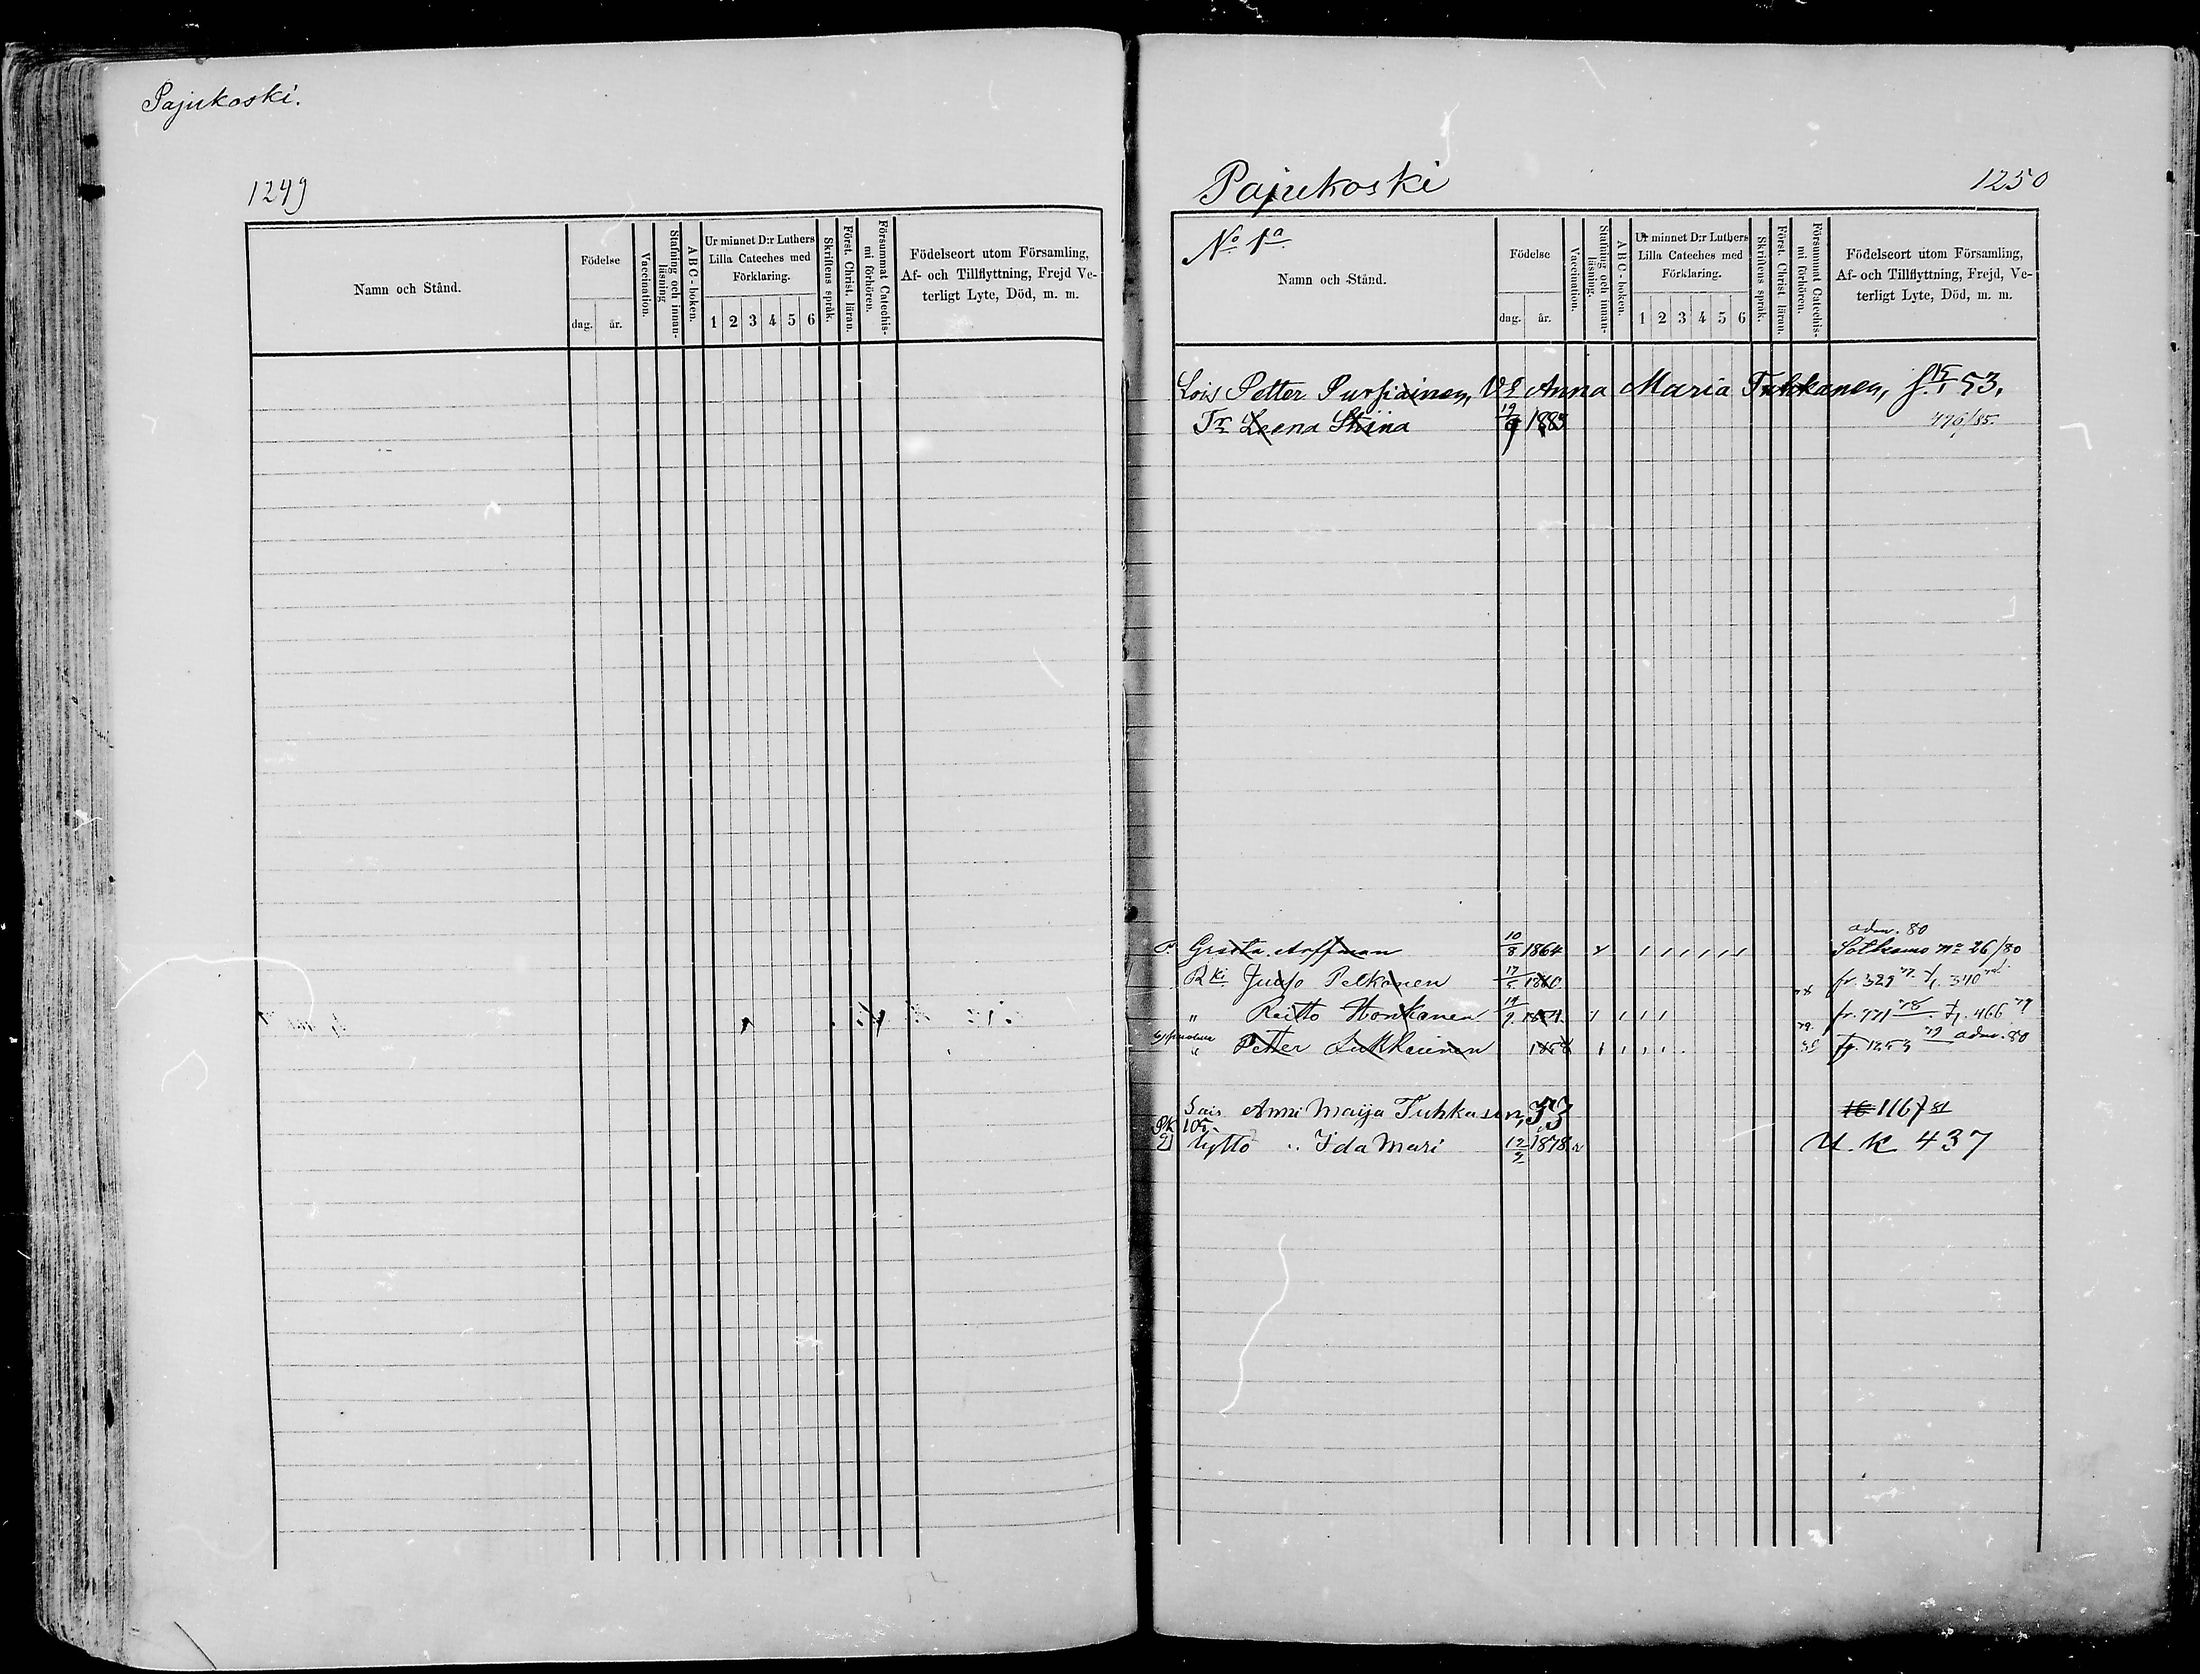 Pajukoski.
1249
Namn och Stånd.
Födelse
dag. år.
Vaccination.
Stafning och innan-
läsning
ABC-boken.
Ur minnet D:r Luthers
Lilla Cateches med
Förklaring.
1 2 3 4 5 6
Skriftens språk.
Först. Christ. läran.
Försummat Catechis-
mi förhören.
Födelseort utom Församling,
Af- och Tillflyttning, Frejd Ve-
terligt Lyte, Död, m. m.
Pajukoski
1250
No 1a
Namn och Stånd.
Födelse
dag. år.
Vaccination.
Stafning och innan-
läsning.
ABC-boken.
Ur minnet D:r Luthers
Lilla Cateches med
Förklaring.
1 2 3 4 5 6
Skriftens språk.
Först. Christ. läran.
Försummat Catechis-
mi förhören.
Födelseort utom Församling,
Af- och Tillflyttning, Frejd, Ve-
terligt Lyte, Död, m. m.
Lois Petter Pursiainen, Anna Maria Tuhkanen, 53.
Tr Leena Stiina 1883 476/85.
adm. 80
P. Greeta 10/8 1864 Sotkamo No 26/80
Rki Juuso Pelkonen 17/5 1860 fr. 329 340
" Reitto Honkanen 19/9 fr. 771 78 466 79
" Petter 1858 fr. 1253 79 adm. 80
Anni Maija Tuhkasen, 53 16 1167 81
tyttö " Ida Mari 12/2 1878 U. K. 437